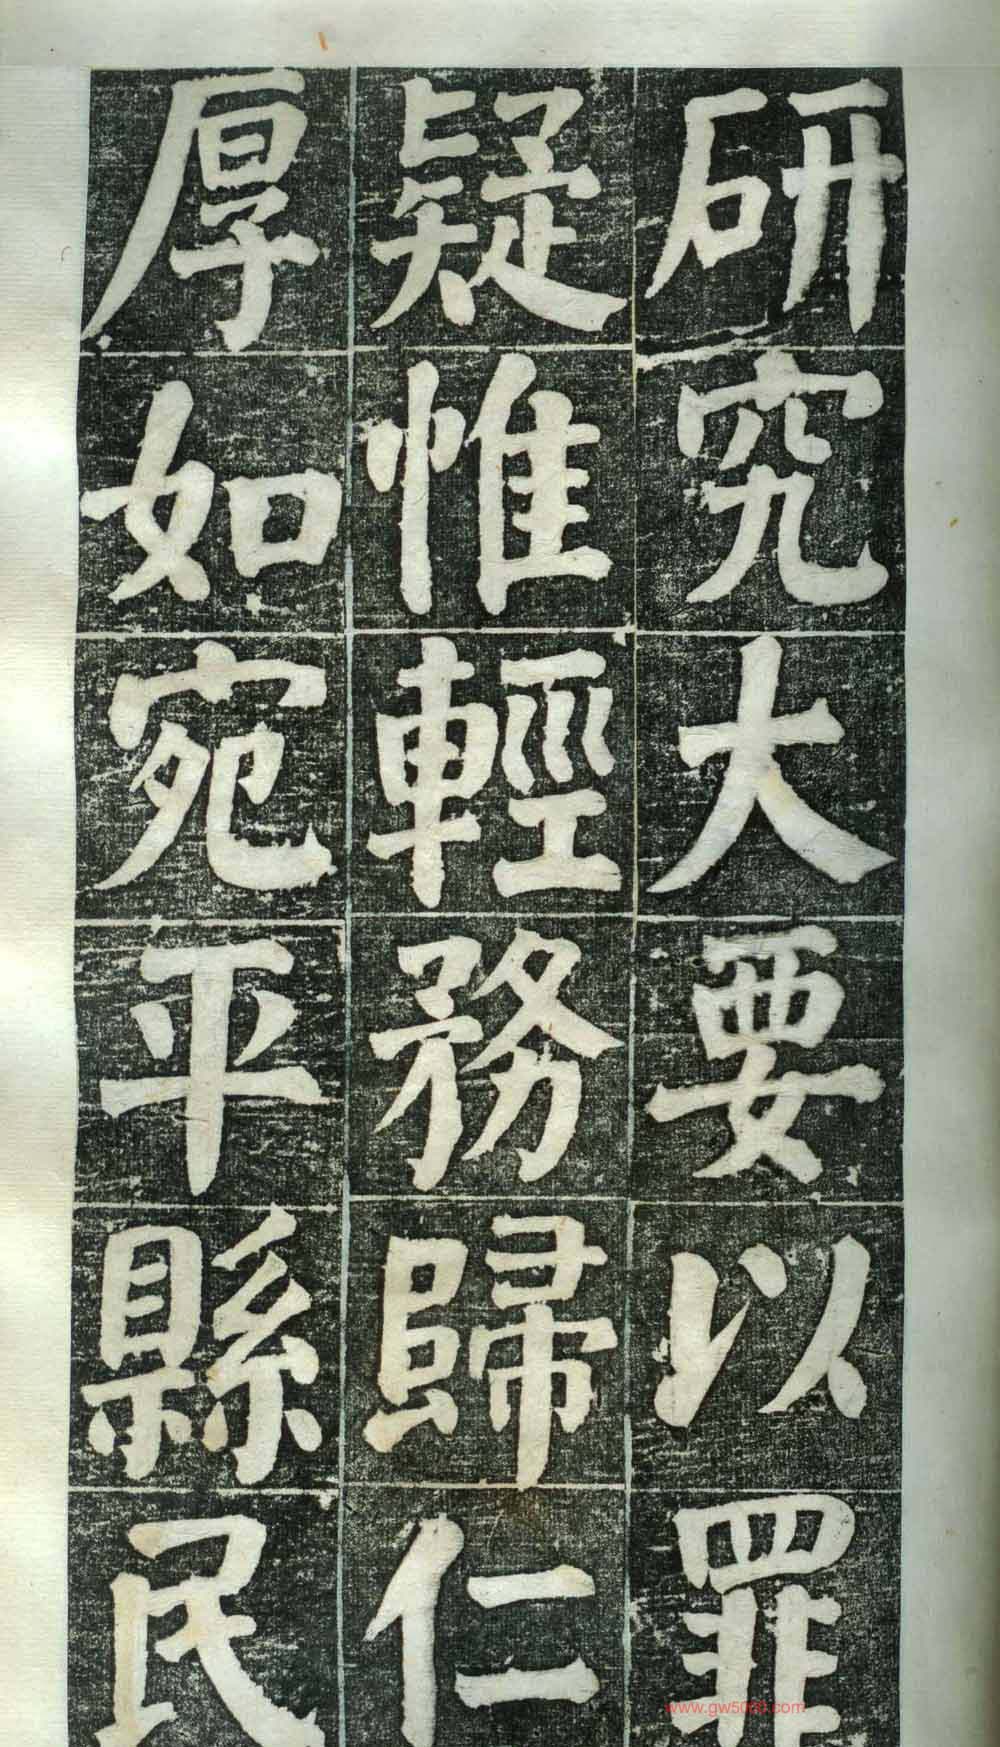 研究大要以罪
疑惟輕務歸仁
厚如宛平縣民
www.gw5000.com